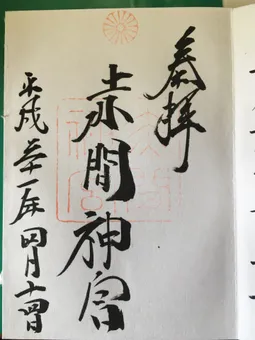 奉拝
赤間神宮
平成三十一年四月十四日